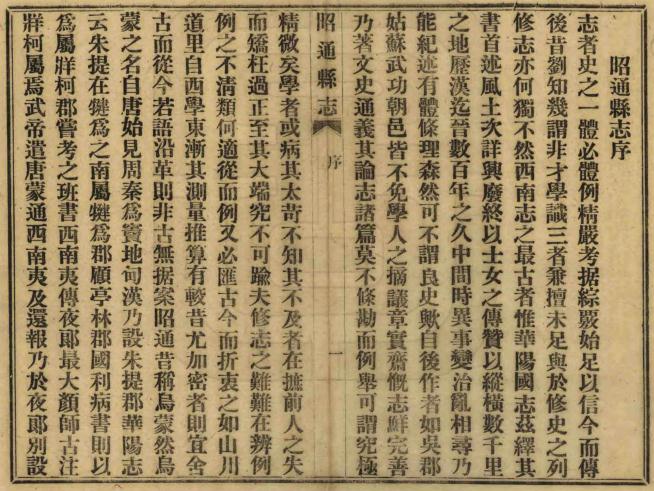 昭通縣志序
志者史之一體必體例精嚴考据綜覈始足以信今而傳
後昔劉知幾謂非才學識三者兼擅未足與於修史之列
修志亦何獨不然西南志之最古者惟華陽國志茲繹其
書首述風土次詳興廢終以士女之傳贊以縱橫數千里
之地歷漢迄晉數百年之久中間時異事變治亂相尋乃
能紀述有體條理森然可不謂良史歟自後作者如吳郡
姑蘇武功朝邑皆不免學人之摘譏章實齋慨志鮮完善
乃著文史通義其論志諸篇莫不條勘而例舉可謂究極
昭通縣志
序
一
精微矣學者或病其太苛不知其不及者在摭前人之失
而矯枉過正至其大端究不可踰夫修志之難難在辨例
例之不清類何適從而例又必匯古今而折衷之如山川
道里自西學東漸其測量推算有較昔尤加密者則宜舍
古而從今若語沿革則非古無据案昭通昔稱烏蒙然烏
蒙之名自唐始見周秦為竇地旬漢乃設朱提郡華陽志
云朱提在犍為之南屬犍為郡顧亭林郡國利病書則以
為屬牂柯郡嘗考之班書西南夷傳夜郞最大顏師古注
牂柯屬焉武帝遣唐蒙通西南夷及還報乃於夜郞別設